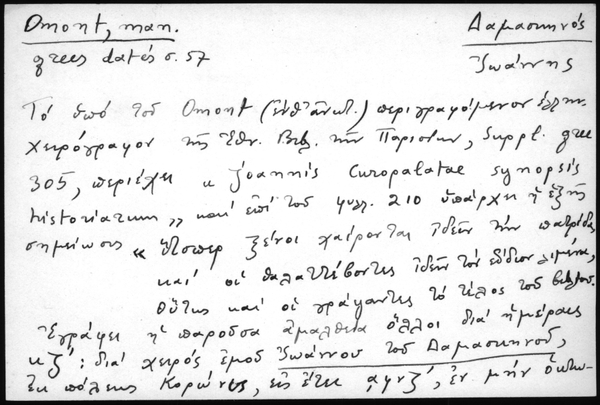 Omont, man.
grecs datés σ. 57
Δαμασκηνός
Ἰωάννης
Τό ὑπό τοῦ Omont (ἔνθ' ἀνωτ.) περιγραφόμενον ἑλλην.
χειρόγραφον τῆς Ἐθν. Βιβ. τῶν Παρισίων, Suppl. grec
305, περιέχει « Joannis Curopalatae synopsis
historiarum » καί ἐπί τοῦ φυλλ. 210 ὑπάρχει ἡ ἑξῆς
σημείωσις « ὥσπερ ξένοι χαίρονται ἰδεῖν τήν πατρίδα,
καί οἱ θαλαττεύοντες ἰδεῖν τόν εὔδιον λιμένα,
οὕτως καί οἱ γράφοντες τό τέλος τοῦ βιβλίου.
Ἐγράφει ἡ παροῦσα ἀμαλθεία ὅλλοι διά ἡμέραις
κζ΄: διά χειρός ἐμοῦ Ἰωάννου τοῦ Δαμασκηνοῦ,
ἐκ πόλεως Κορώνης, εἰς ἔτει ͵αφνζ΄, ἐν μήν ὀκτω-